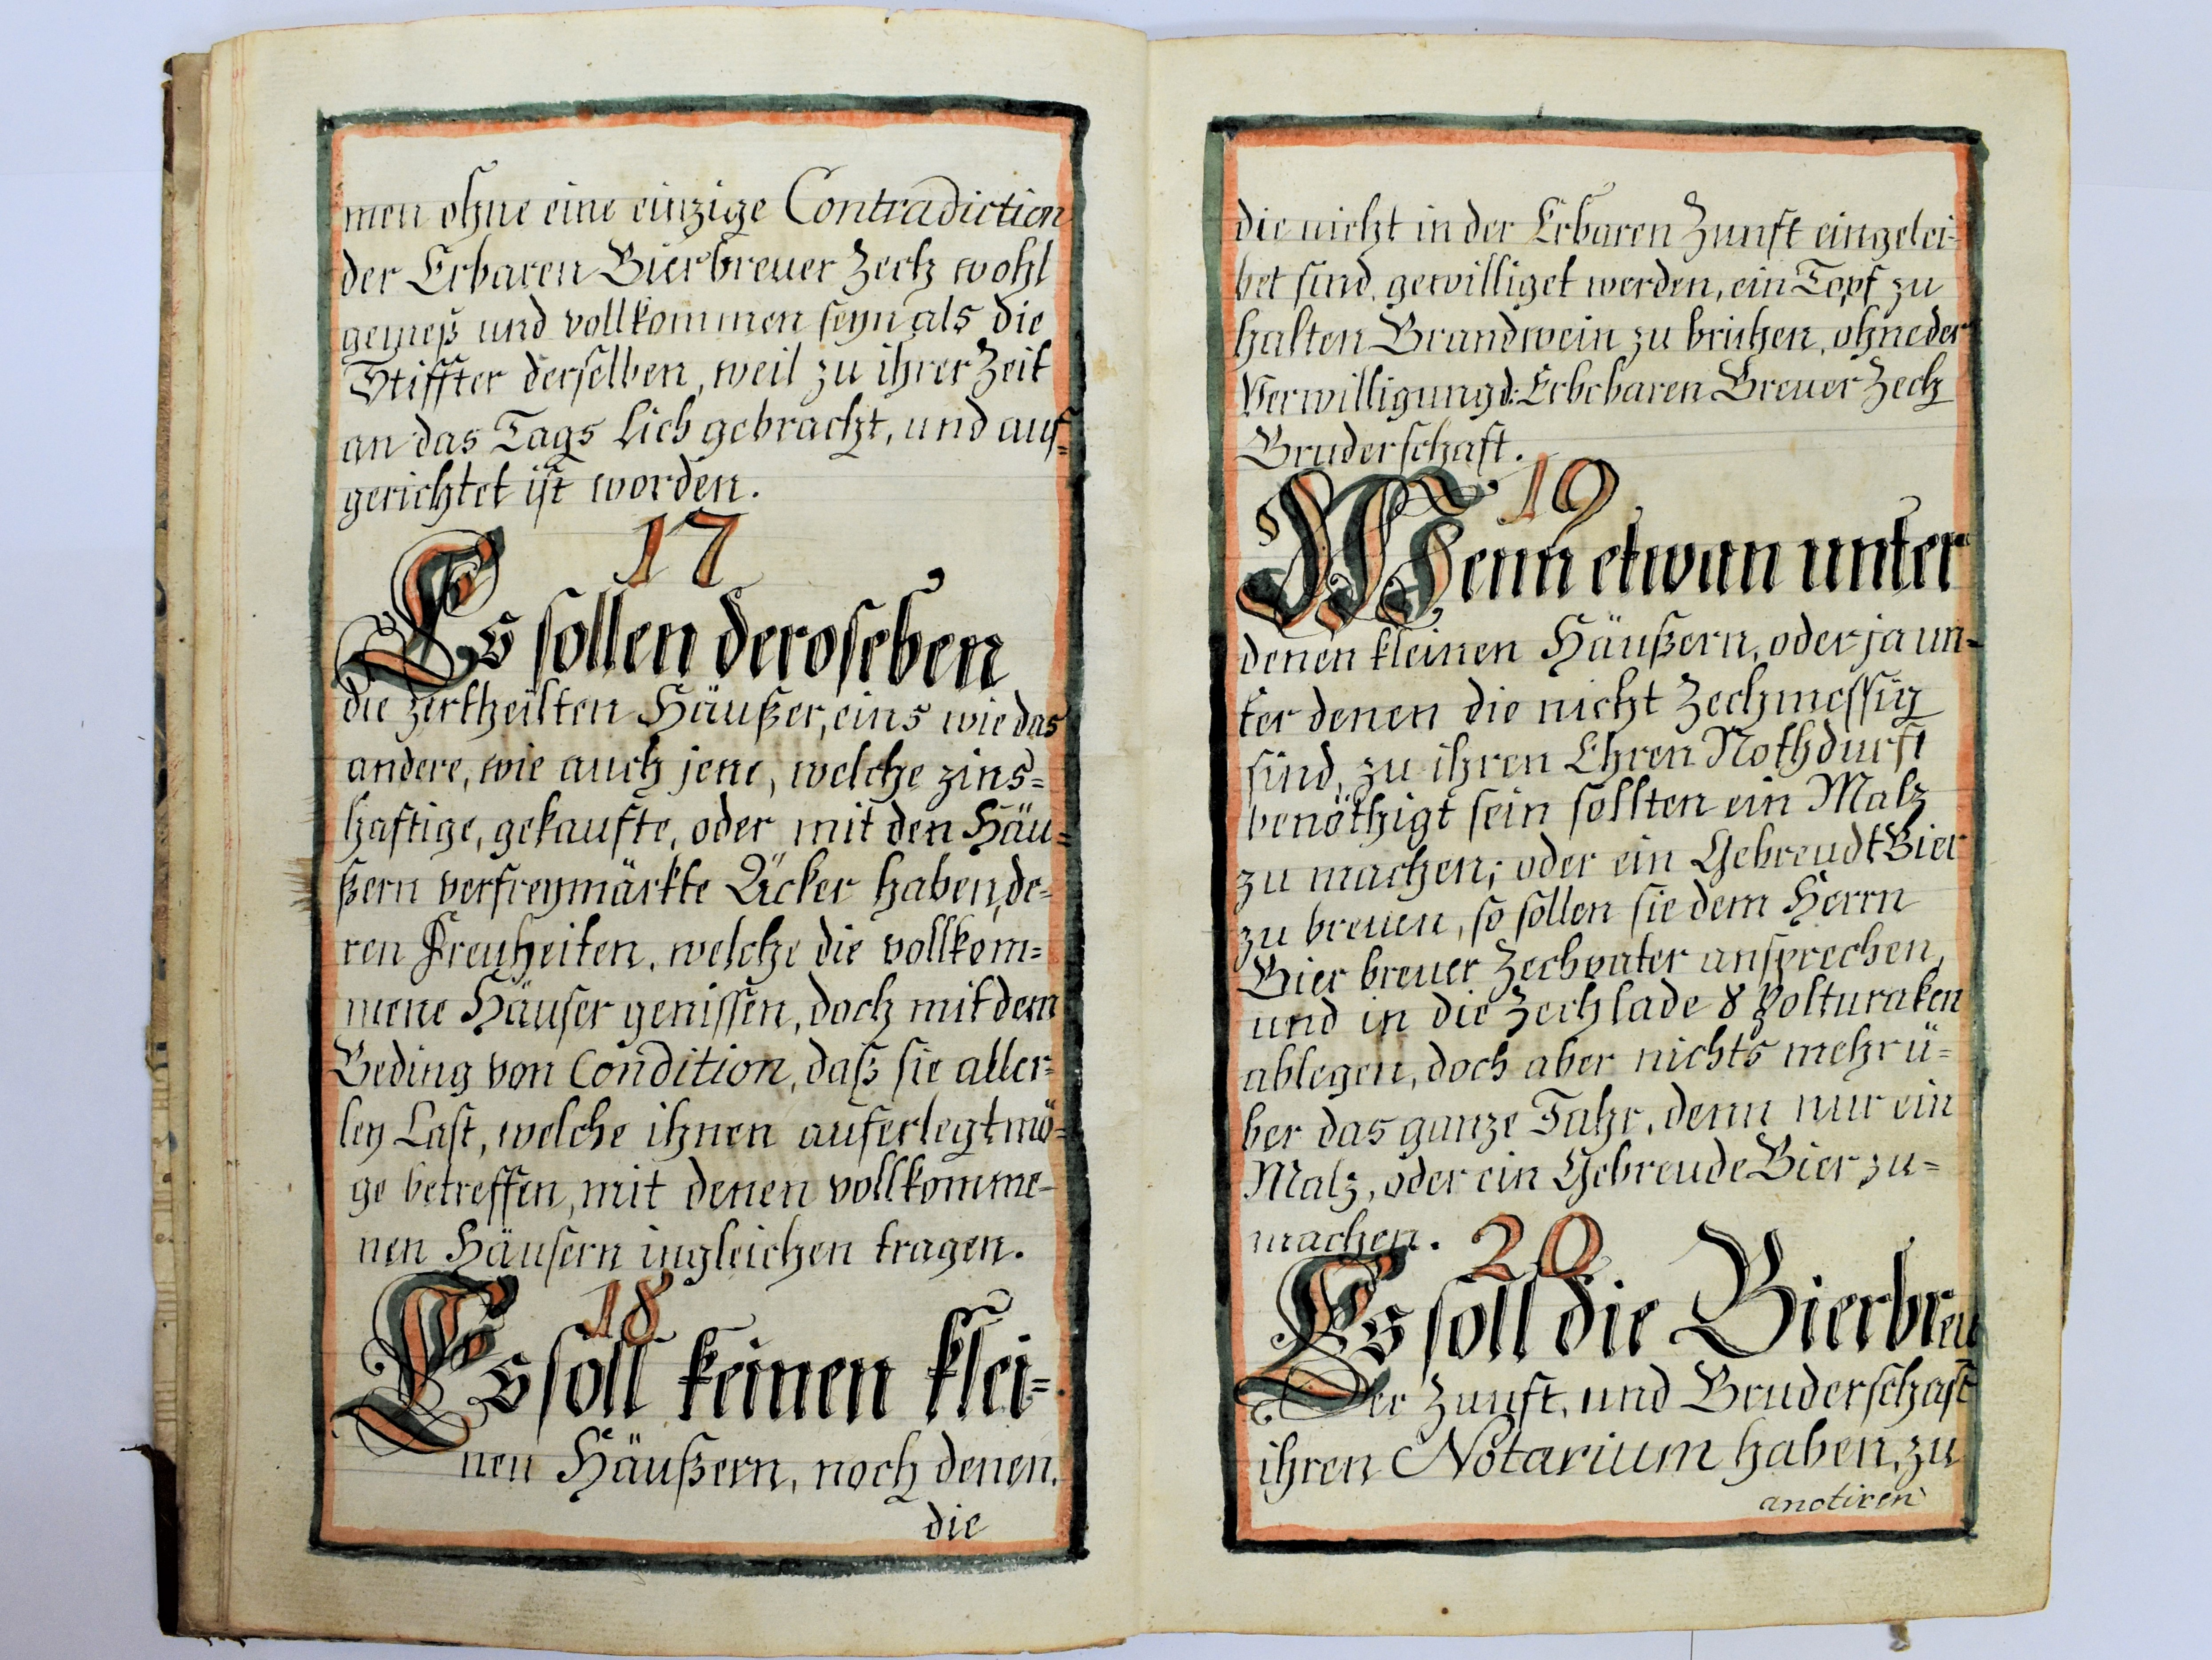 men ohne eine einzige Contradiction
der Erbaren Bierbreuer Zech wohl
gemeß und vollkommen seyn als die
Stiffter derselben, weil zu ihrer Zeit
an das Tags Lich gebracht, und auf=
gerichtet ist worden.
17
Es sollen deroselben
die zertheilten Häußer, eins wie das
andere, wie auch jene, welche zins=
haftige, gekaufte, oder mit den Häu=
ßern verfreymärkte Äcker haben, de=
ren Freyheiten, welche die vollkom=
mene Häuser genissen, doch mit dem
Beding von Condition, daß sie aller=
ley Last, welche ihnen auferlegt mö=
ge betreffen, mit denen vollkomme=
nen Häusern ingleichen tragen.
18
Es soll keinen klei=
nen Häußern, noch denen,
die
die nicht in der Erbaren Zunft eingelei=
bet sind, gewilliget werden, ein Topf zu
halten Brandwein zu brühen, ohne der
Verwilligung d: Erbebaren Breuer Zech
Bruderschaft.
19
Wenn etwan unter
denen kleinen Häußern, oder ja un=
ter denen die nicht Zechmessig
sind, zu ihren Ehren Nothdurft
benöthigt sein sollten ein Malz
zu machen; oder ein Gebreudt Bier
zu breuen, so sollen sie dem Herrn
Bier breuer Zechvater ansprechen,
und in die Zechlade 8 Polturaken
ablegen, doch aber nichts mehr ü=
ber das ganze Jahr, denn nur ein
Malz, oder ein Gebreude Bier zu=
machen.
20
Es soll die Bierbreu
er Zunft, und Bruderschaft
ihren Notarium haben, zu
anotiren